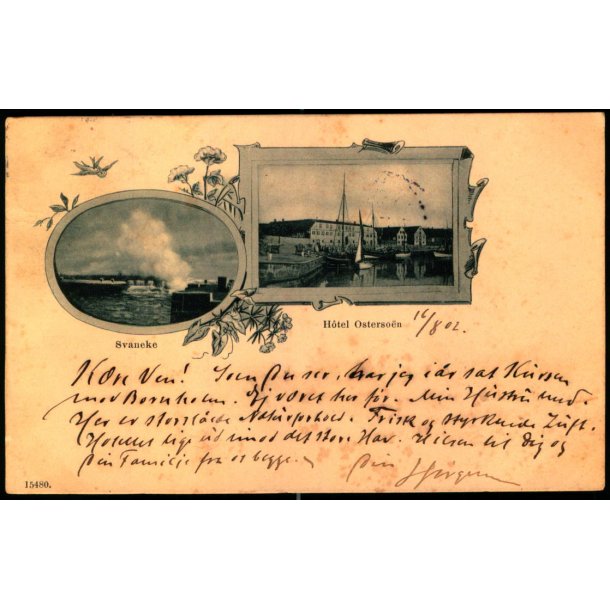 Hôtel Ostersoën
16/8 02.
Svaneke
Kære Ven! Som Du ser, har jeg i år sat Kursen
mod Bornholm. Ej været her før. Min Hustru med.
Her er storslåede Naturforhold. Frisk og styrkende Luft.
Hotellet lige ud imod det store Hav. Hilsen til Dig og
Din Familje fra os begge. Din
15480.